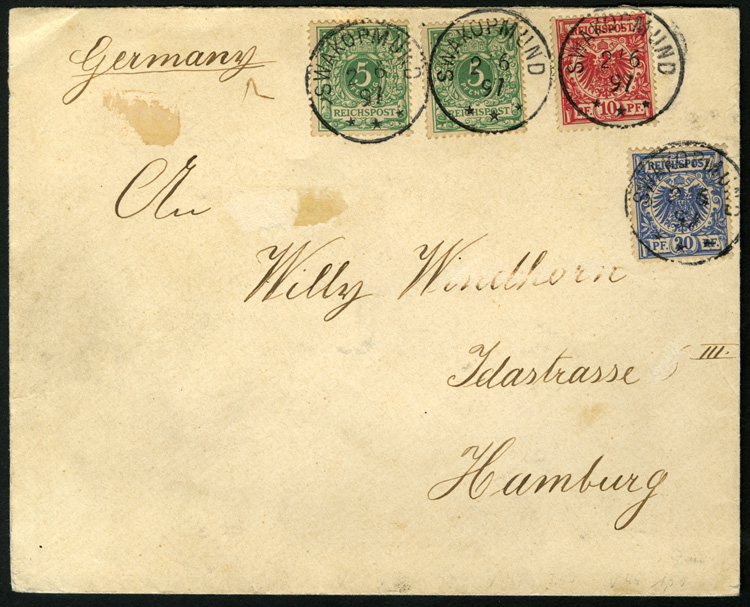 Germany
SWAKOPMUND
2 6
97
5
REICHSPOST
SWAKOPMUND
2 6
97
5
REICHSPOST
SWAKOPMUND
REICHSPOST
2 6
97
PF. 10 PF.
An
SWAKOPMUND
REICHSPOST
2 6
97
PF. 20 PF.
Willy Windhorn
Idastrasse 5 III.
Hamburg